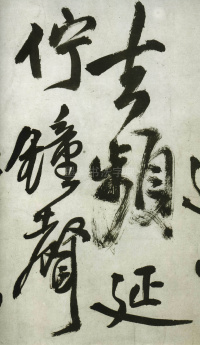 去頻延
佇鐘聲